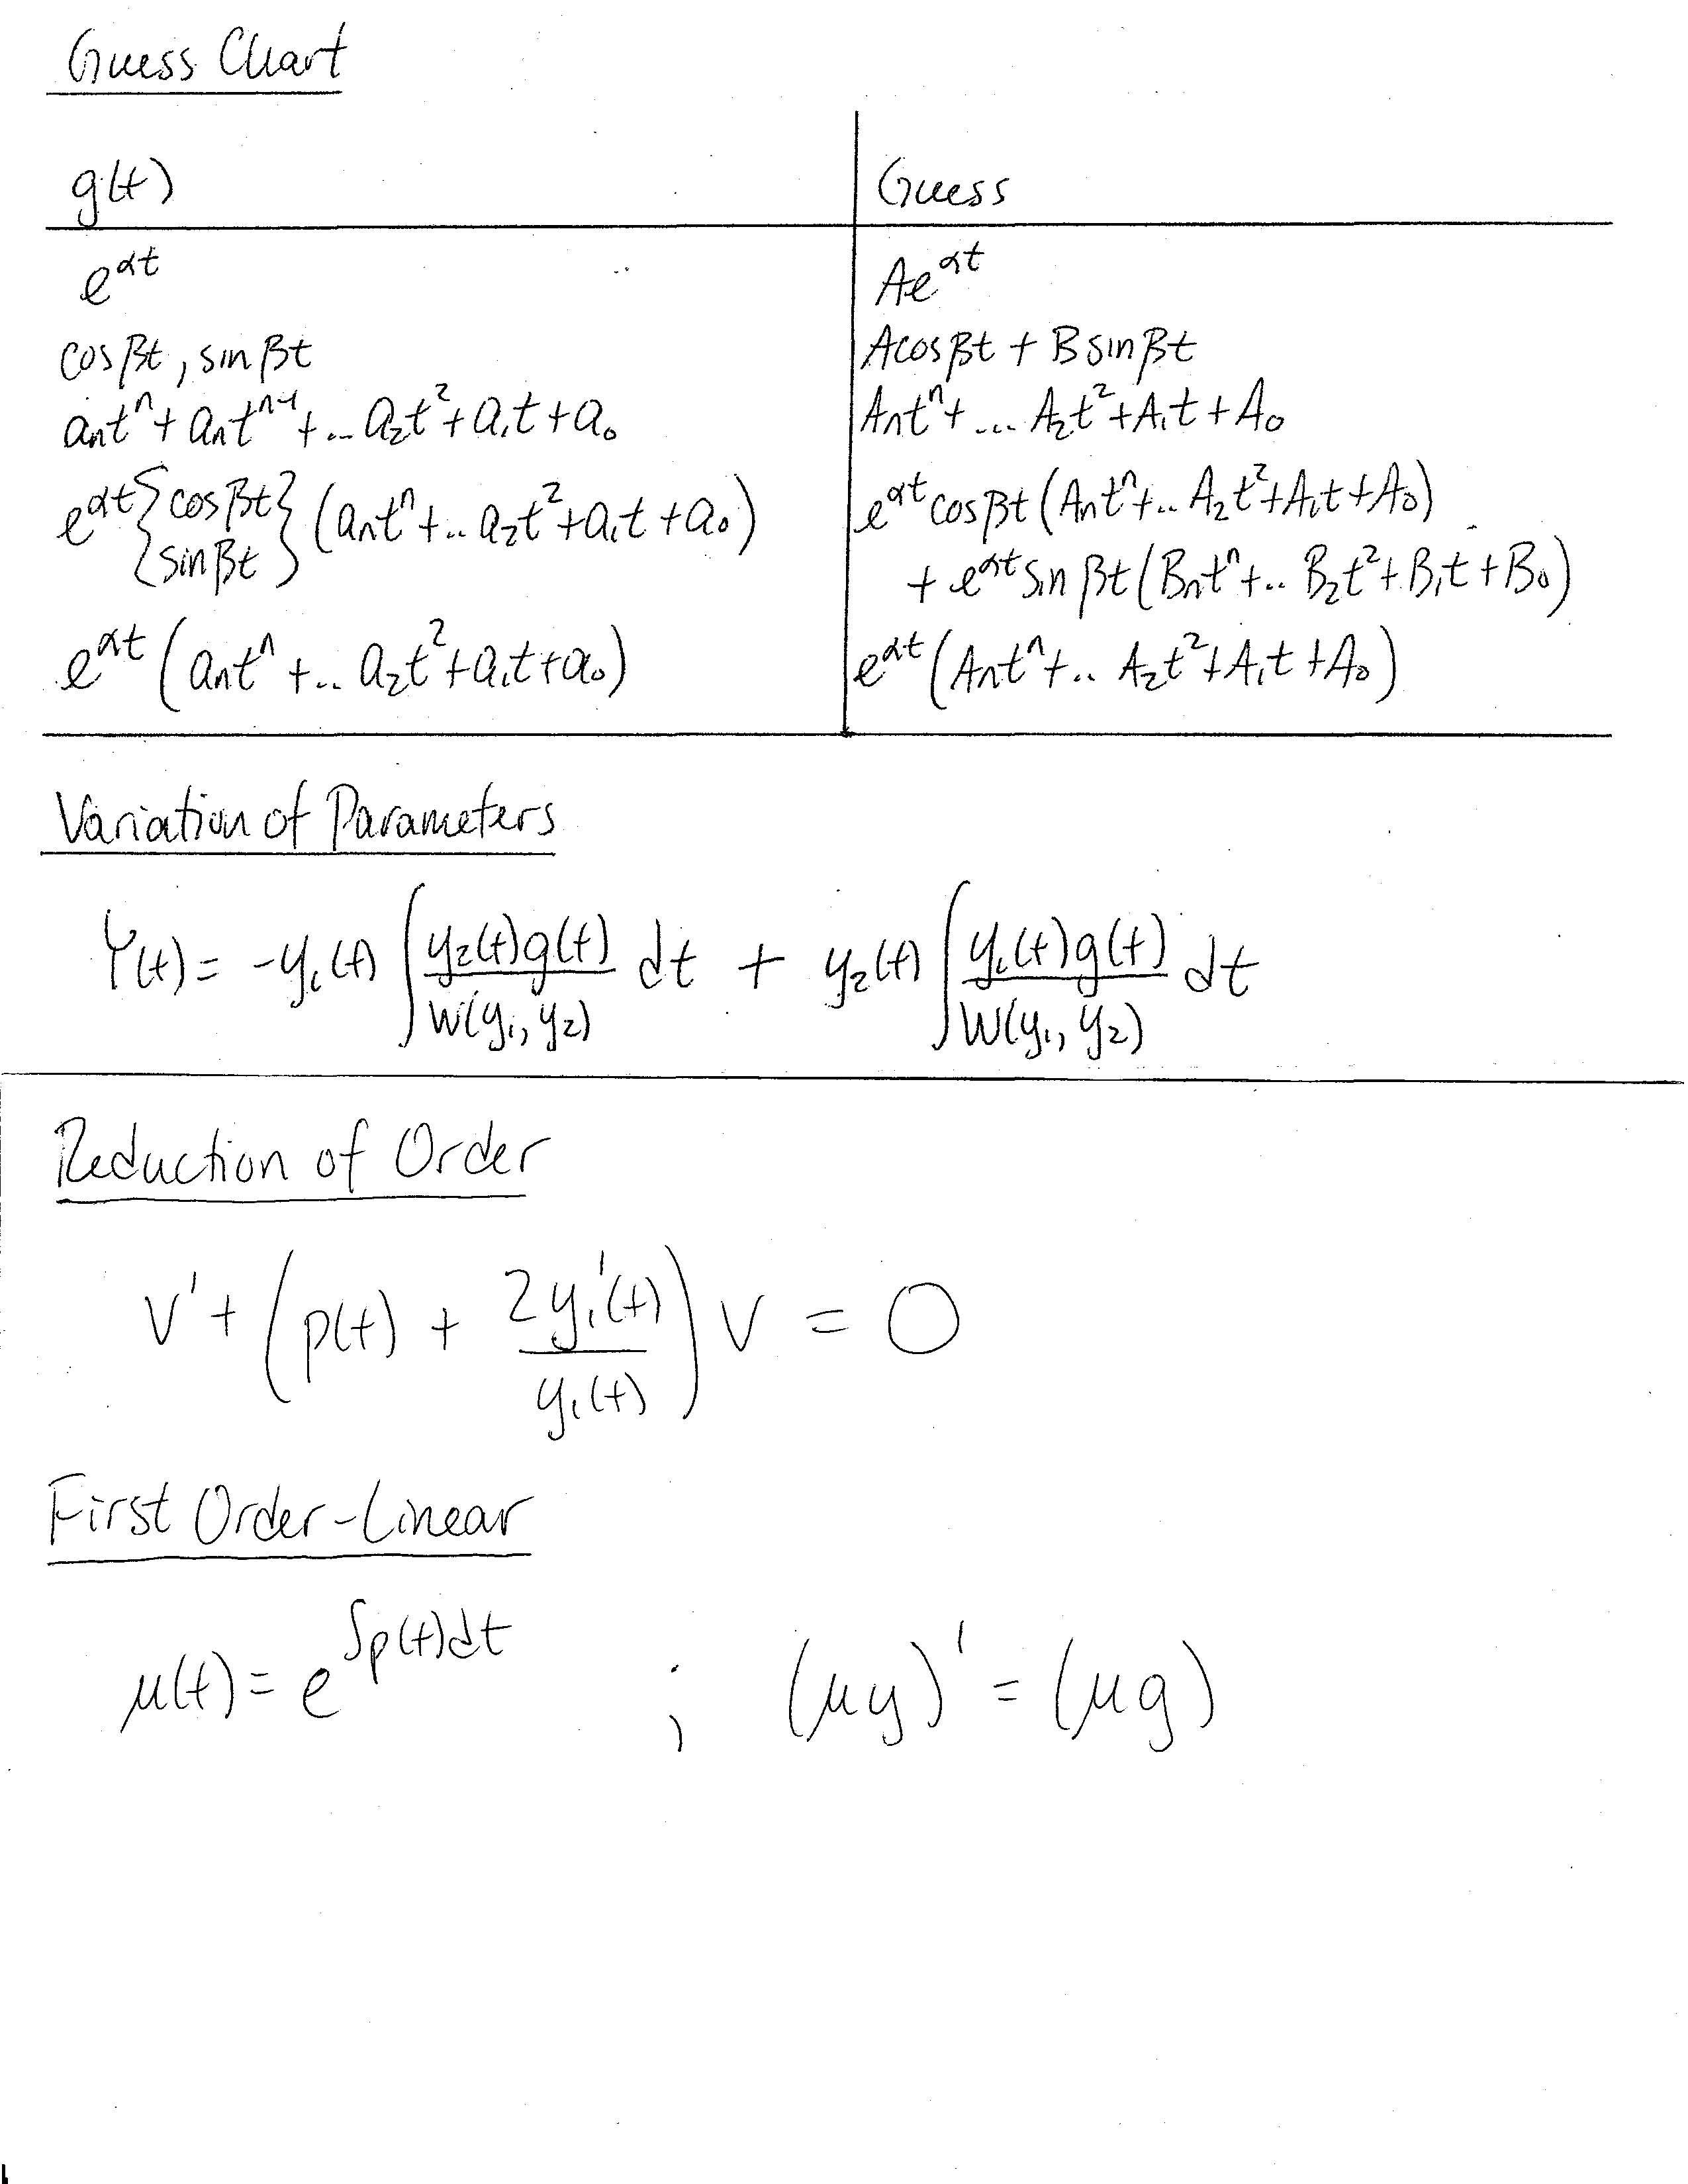 Guess Chart
g(t) Guess
e^{αt} Ae^{αt}
cosβt, sinβt Acosβt + Bsinβt
a_nt^n + a_nt^{n-1} + ... a_2t^2 + a_1t + a_0 A_nt^n + ... A_2t^2 + A_1t + A_0
e^{αt} {cosβt sinβt} (a_nt^n + .. a_2t^2 + a_1t + a_0) e^{αt}cosβt (A_nt^n + .. A_2t^2 + A_1t + A_0)
+ e^{αt} sin βt (B_nt^n + .. B_2t^2 + B_1t + B_0)
e^{αt} (a_nt^n + .. a_2t^2 + a_1t + a_0) e^{αt} (A_nt^n + .. A_2t^2 + A_1t + A_0)
Variation of Parameters
Y(t) = -y_1(t) ∫ \frac{y_2(t)g(t)}{W(y_1, y_2)} dt + y_2(t) ∫ \frac{y_1(t)g(t)}{W(y_1, y_2)} dt
Reduction of Order
v' + (p(t) + \frac{2y_1'(t)}{y_1(t)}) v = 0
First Order-Linear
μ(t) = e^{∫p(t)dt} ; (μy)' = (μg)